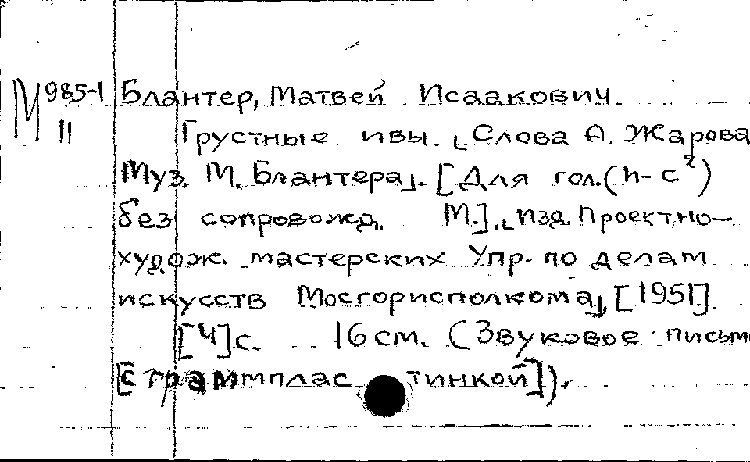 М 985-1 Блантер, Матвей Исаакович.
11 Грустные ивы. [Слова А. Жарова
Муз. М. Блантера]. [Для гол. (h-c²)
без сопровожд. М.], [изд. Проектно-
худож. мастерских Упр. по делам
искусств Мосгорисполкома], [1951].
[4]с. 16 см. (Звуковое письм
[с граммплас тинкой]).